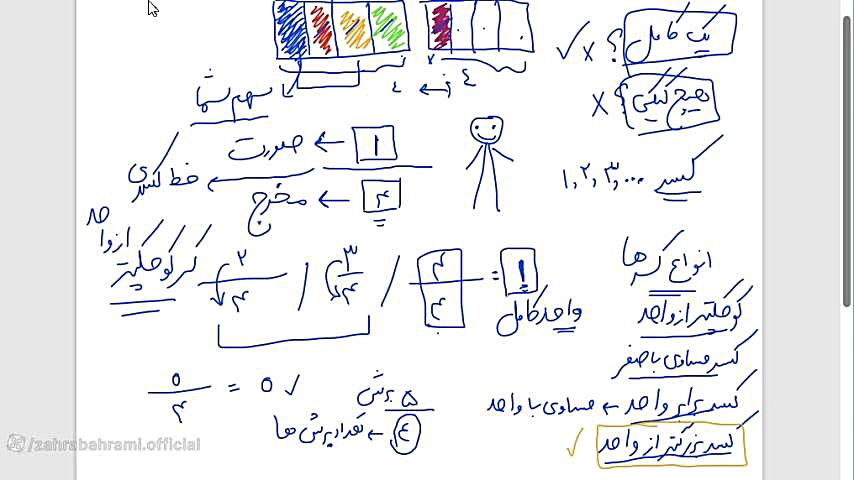 یک کامل ؟ × ✓
هیچ کیکی ؟ ×
کسر ۱, ۲, ۳, ...
انواع کسرها
کوچکتر از واحد
کسر مساوی با صفر
کسر برابر واحد ← مساوی با واحد
کسر بزرگتر از واحد ✓
۴ ← ۴
سهم شما
۱ ← صورت
خط کسری
۴ ← مخرج
کسر کوچکتر از واحد
۲/۴ / ۳/۴ / ۴/۴ = ۱
واحد کامل
۰/۴ = ۰ ✓
۵ برش
۴ ← تعداد برش ها
/zahrabahrami.official